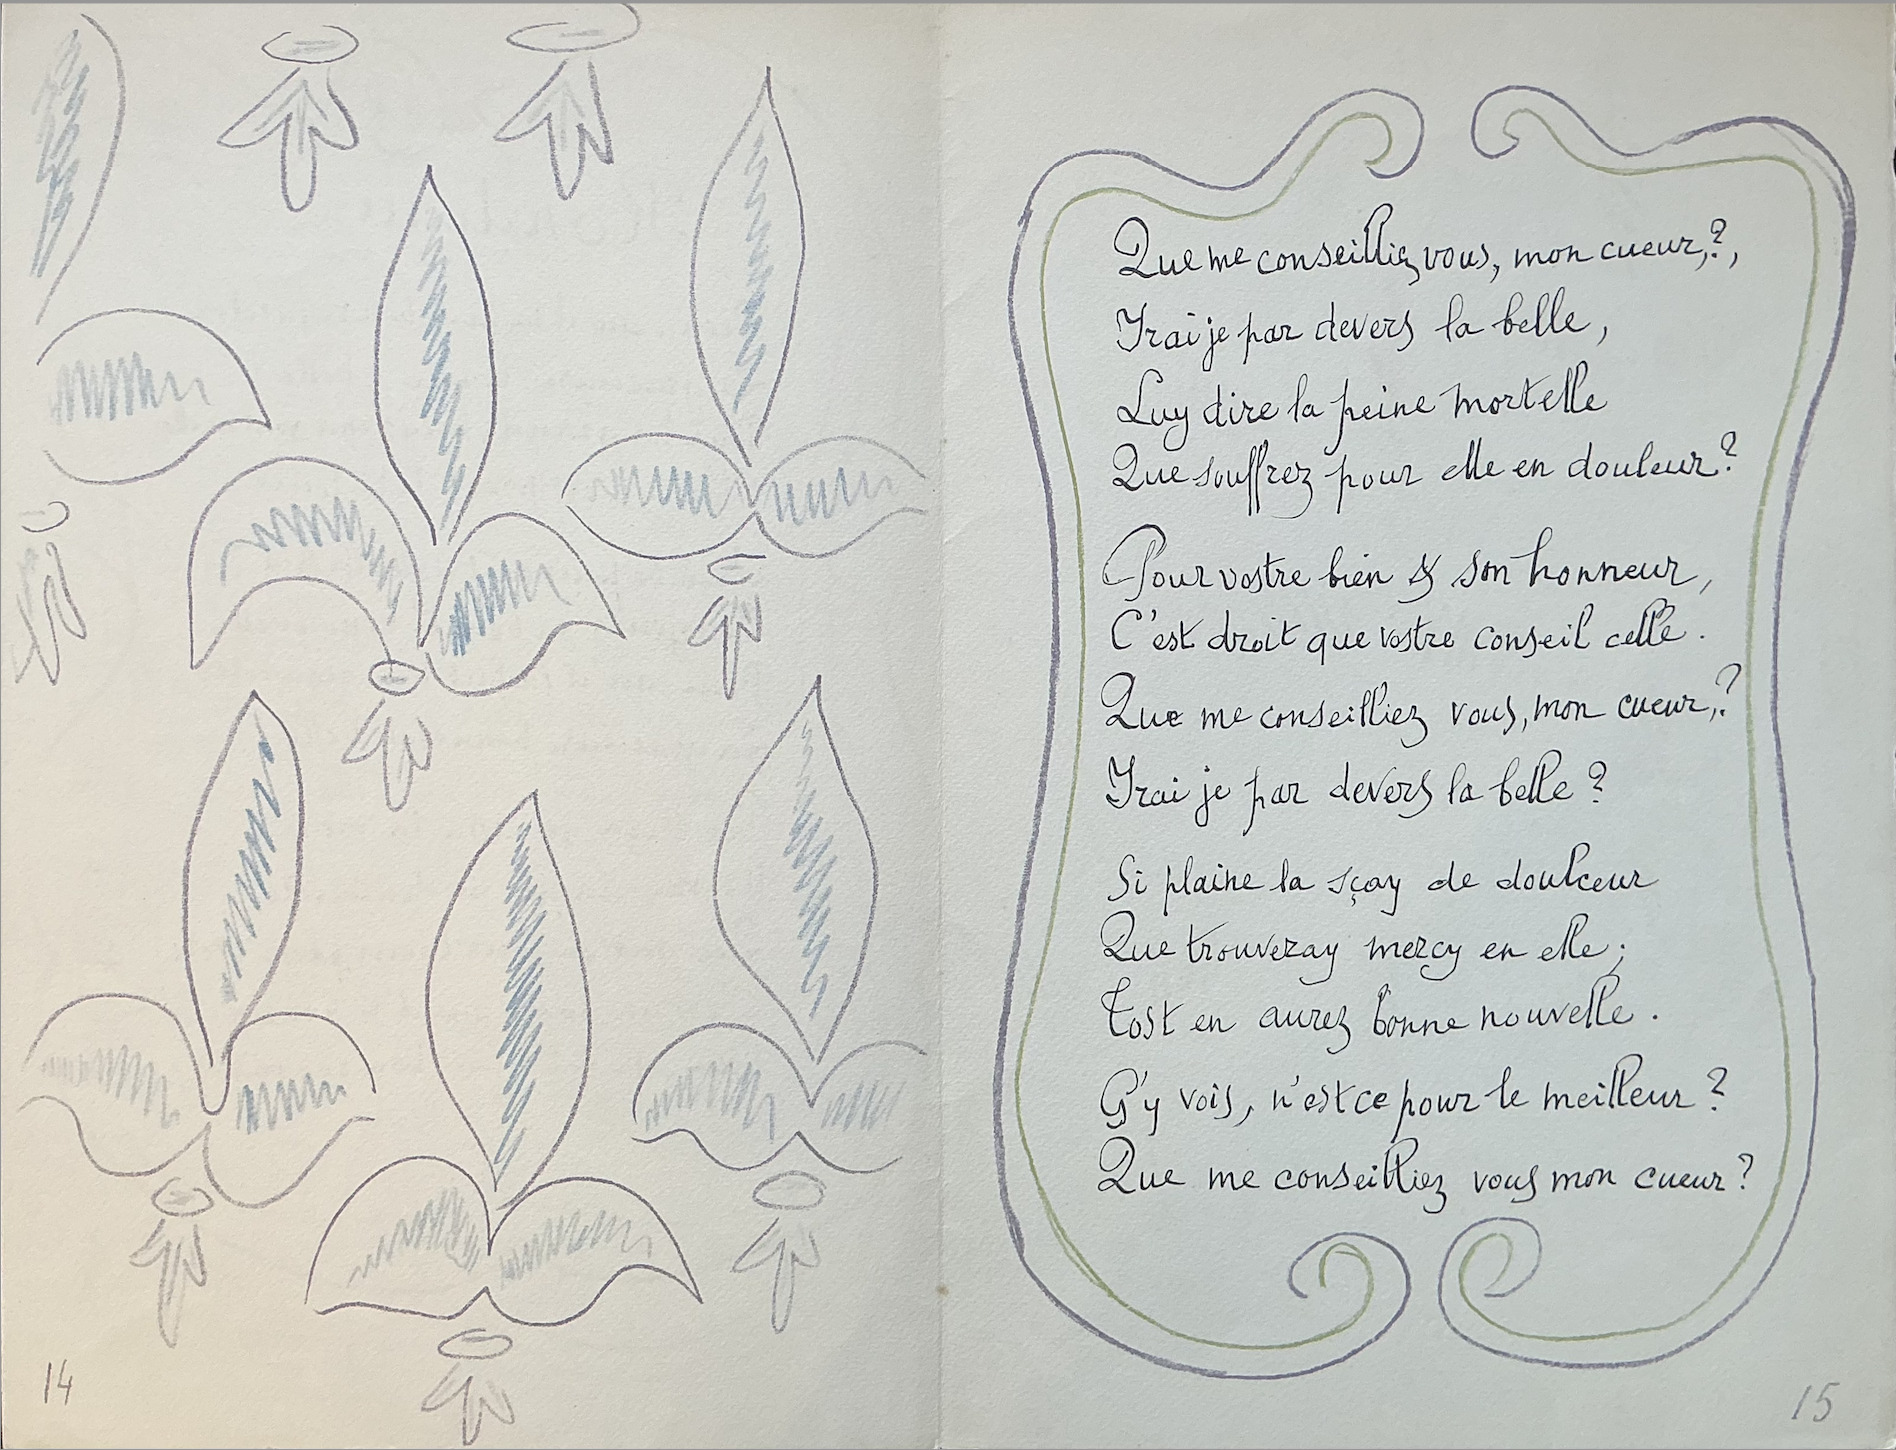 14
Que me conseilliez vous, mon cueur,?,
Yrai je par devers la belle,
Luy dire la peine mortelle
Que souffrez pour elle en douleur?
Pour vostre bien & son honneur,
C'est droit que vostre conseil celle.
Que me conseilliez vous, mon cueur,?
Yrai je par devers la belle?
Si plaine la sçay de doulceur
Que trouveray mercy en elle;
Tost en aurez bonne nouvelle.
G'y vois, n'est ce pour le meilleur?
Que me conseilliez vous mon cueur?
15